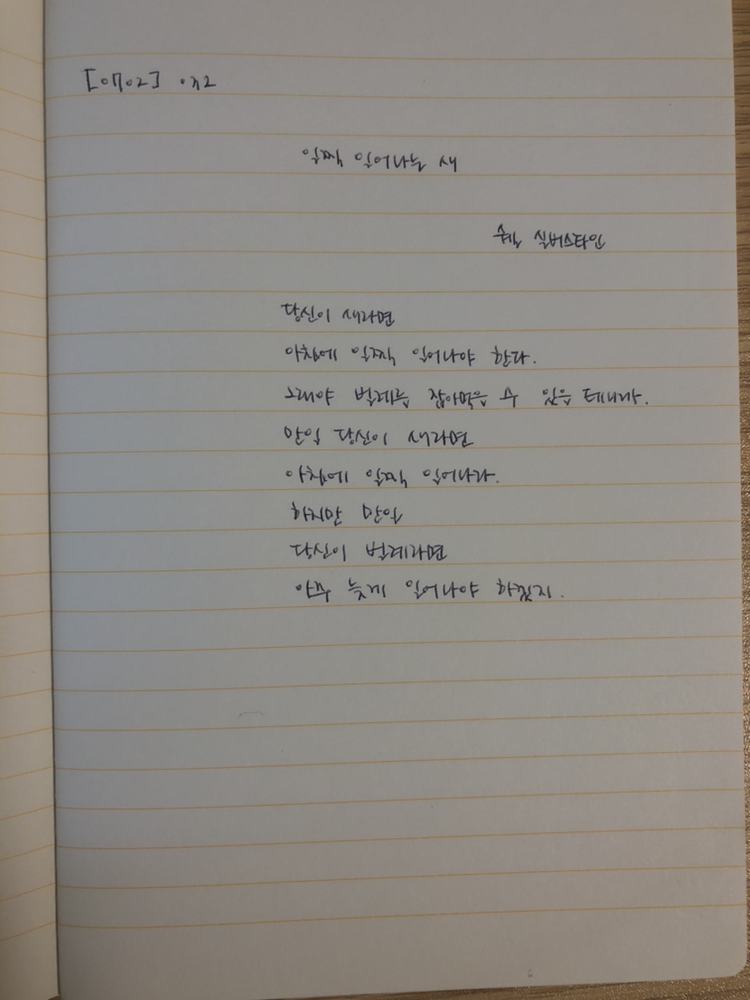 [0702] 032
일찍 일어나는 새
쉘 실버스타인
당신이 새라면
아침에 일찍 일어나야 한다.
그래야 벌레를 잡아먹을 수 있을 테니까.
만일 당신이 새라면
아침에 일찍 일어나라.
하지만 만일
당신이 벌레라면
아주 늦게 일어나야 하겠지.